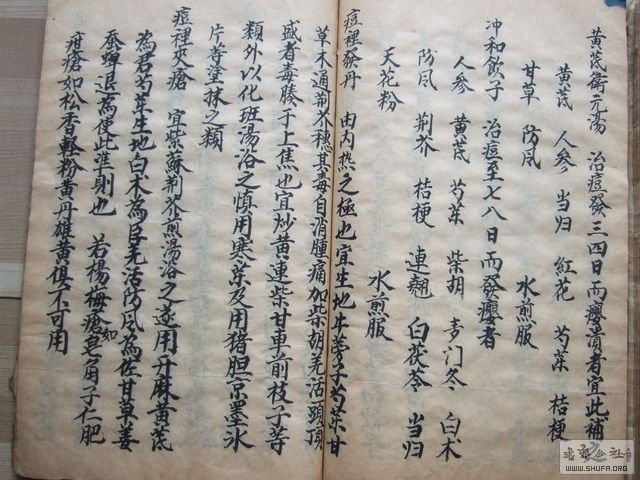 黄芪衛元湯 治痘發三四日而癢潰者宜此補之
黄芪 人參 当归 紅花 芍茱 桔梗
甘草 防风 水煎服
冲和飲子 治痘至七八日而發癢者
人參 黄芪 芍茱 柴胡 麦门冬 白术
防风 荆芥 桔梗 連翹 白茯苓 当归
天花粉 水煎服
痘裡發丹 由内热之極也宜生地牛蒡子芍茱甘
草木通荆芥穗其毒自消腫痛加柴胡羌活頭頂
盛者毒勝于上焦也宜炒黄連柴甘車前枝子等
類外以化班湯浴之慎用寒茱及用猪胆京墨氷
片等塗抹之類
痘裡夾瘡 宜紫蘇荆芥煎湯浴之遂用升麻黄芪
為君芍茱生地白术為臣羌活防风為佐甘草姜
蚕蟬退為使此準則也 若楊梅瘡如皂角子仁肥
疳瘡如松香輕粉黄丹雄黄俱不可用
WWW.SHUFA.ORG